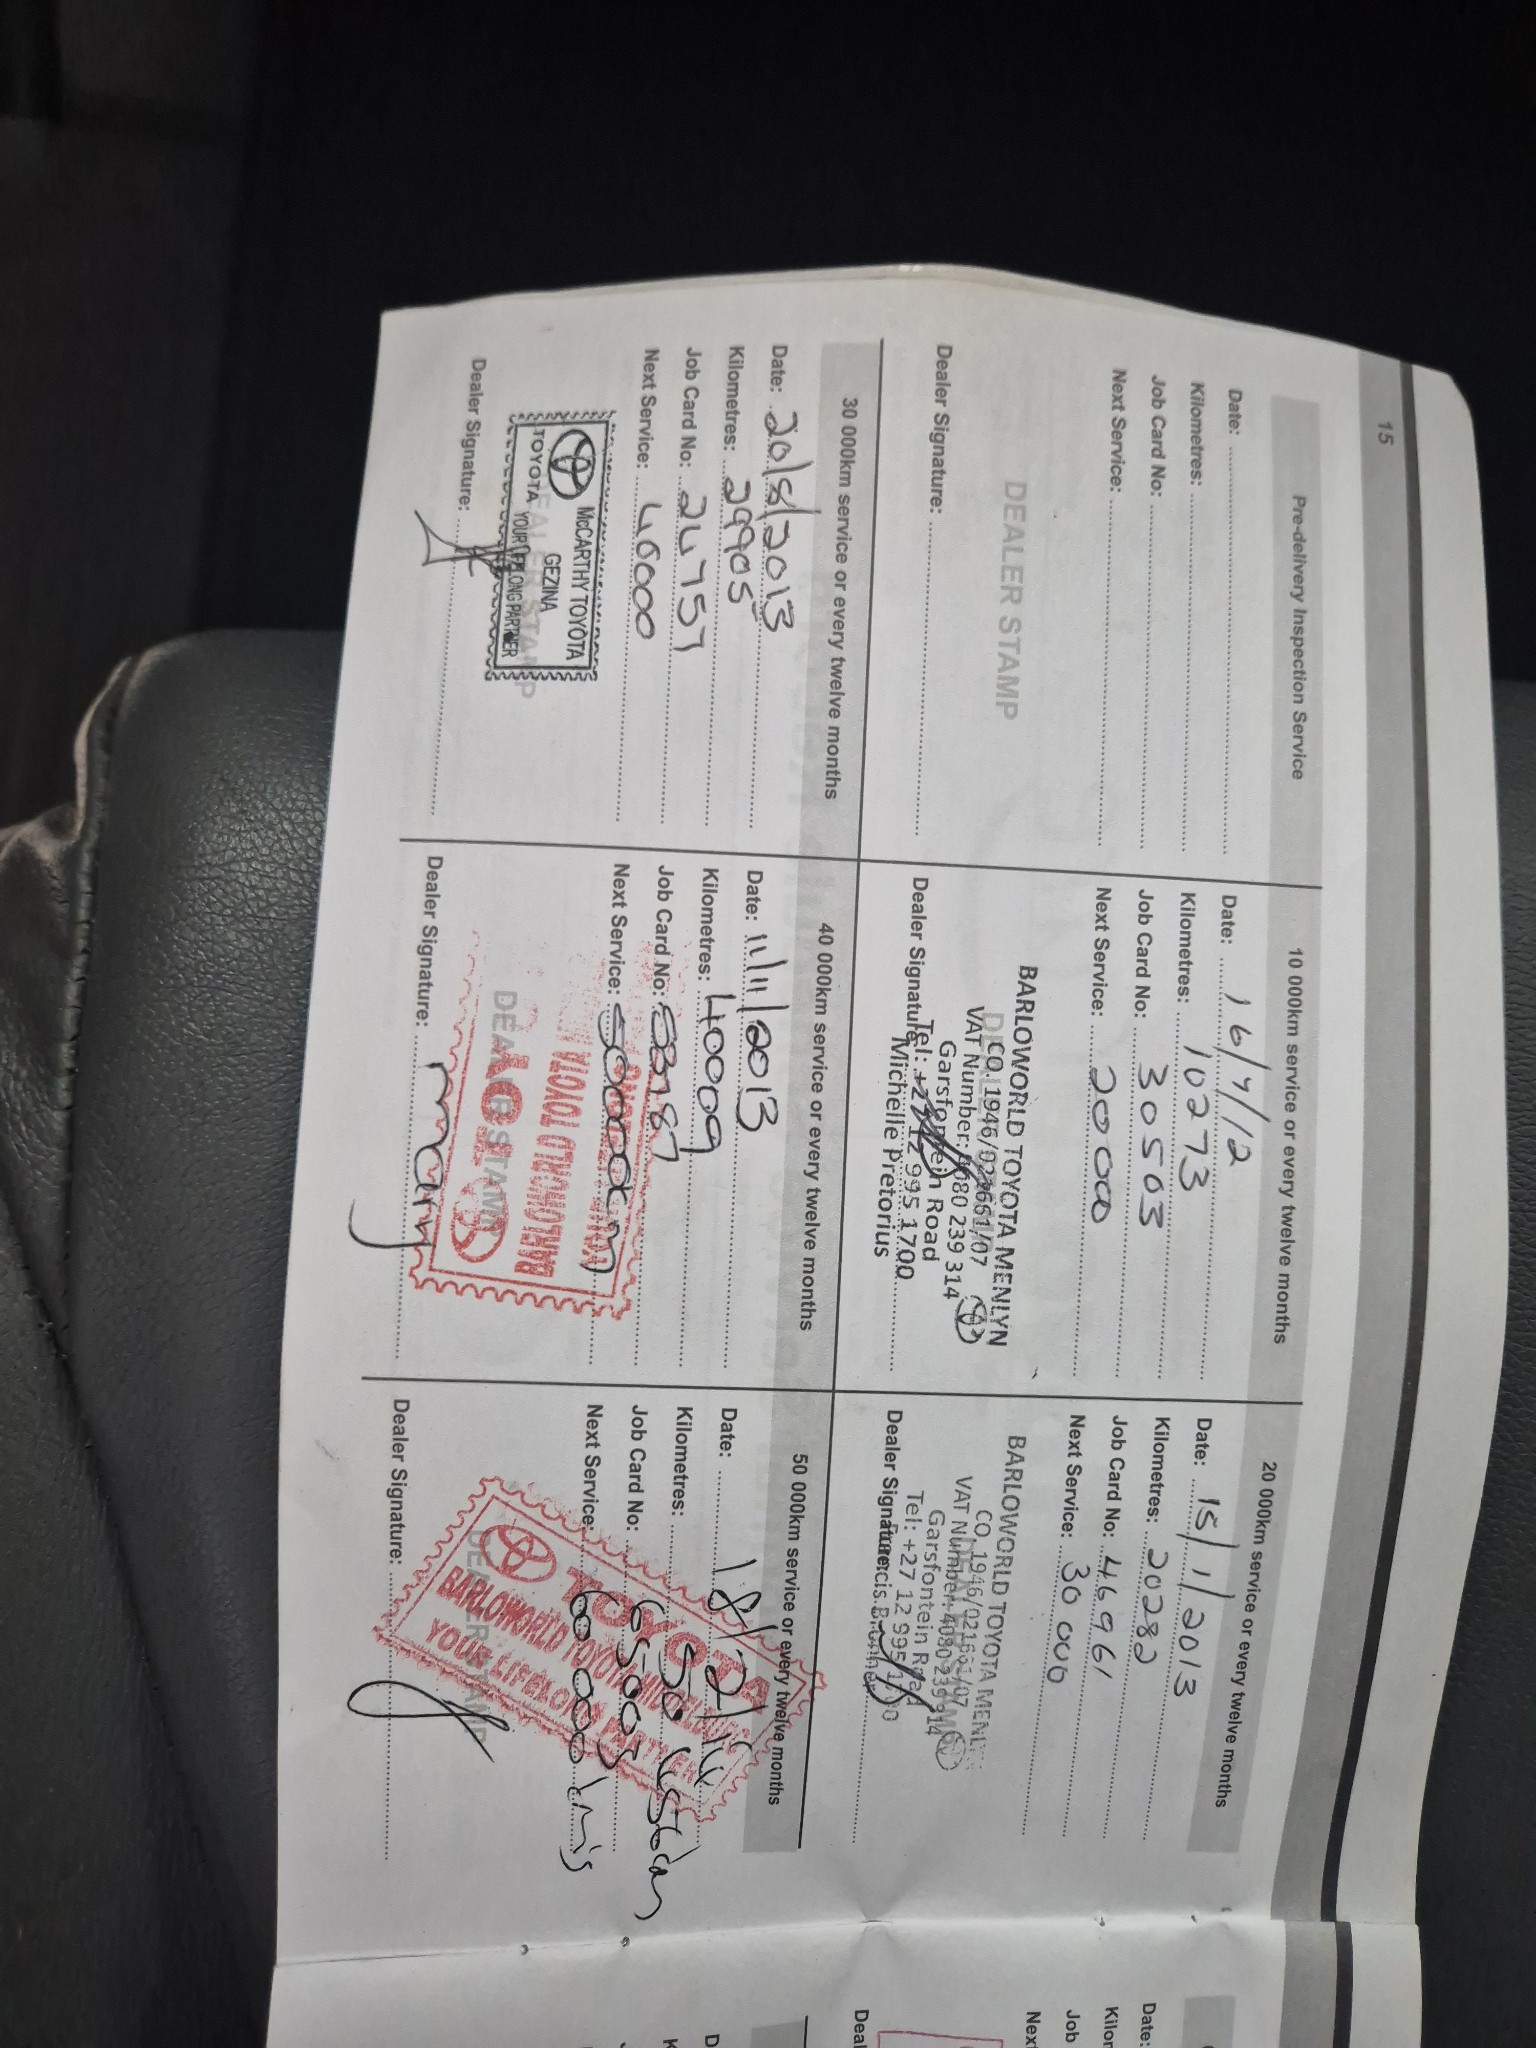 15
Pre-delivery Inspection Service
Date:
Kilometres:
Job Card No:
Next Service:
DEALER STAMP
Dealer Signature:
10 000km service or every twelve months
Date: 16/4/12
Kilometres: 10273
Job Card No: 30503
Next Service: 20000
BARLOWORLD TOYOTA MENLYN
CO. 1946/021661/07
VAT Number: 4080 239 314
Garsfontein Road
Tel: +27 12 995 1700
Dealer Signature: Michelle Pretorius
20 000km service or every twelve months
Date: 15/1/2013
Kilometres: 20282
Job Card No: 46961
Next Service: 30 000
BARLOWORLD TOYOTA MENLYN
CO. 1946/021661/07
VAT Number: 4080 239 314
Garsfontein Road
Tel: +27 12 995 1700
Dealer Signature:
30 000km service or every twelve months
Date: 20/8/2013
Kilometres: 29905
Job Card No: 24757
Next Service: 40000
McCARTHY TOYOTA
GEZINA
TOYOTA YOUR LIFELONG PARTNER
DEALER STAMP
Dealer Signature:
40 000km service or every twelve months
Date: 11/11/2013
Kilometres: 40009
Job Card No:
Next Service:
BARLOWORLD TOYOTA
DEALER STAMP
Dealer Signature: mary
50 000km service or every twelve months
Date: 18/2/14
Kilometres: 50
Job Card No: 65003
Next Service: 60 000 kms
TOYOTA
BARLOWORLD TOYOTA
YOUR LIFELONG PARTNER
DEALER STAMP
Dealer Signature:
Date:
Job